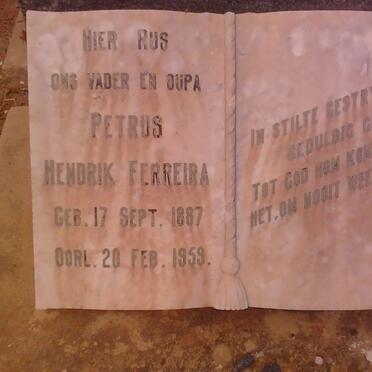 HIER RUS
ONS VADER EN OUPA
PETRUS
HENDRIK FERREIRA
GEB. 17 SEPT. 1887
OORL. 20 FEB. 1959.
IN STILTE
GEDULDIG
TOT GOD HOM
HET, OM NOOIT